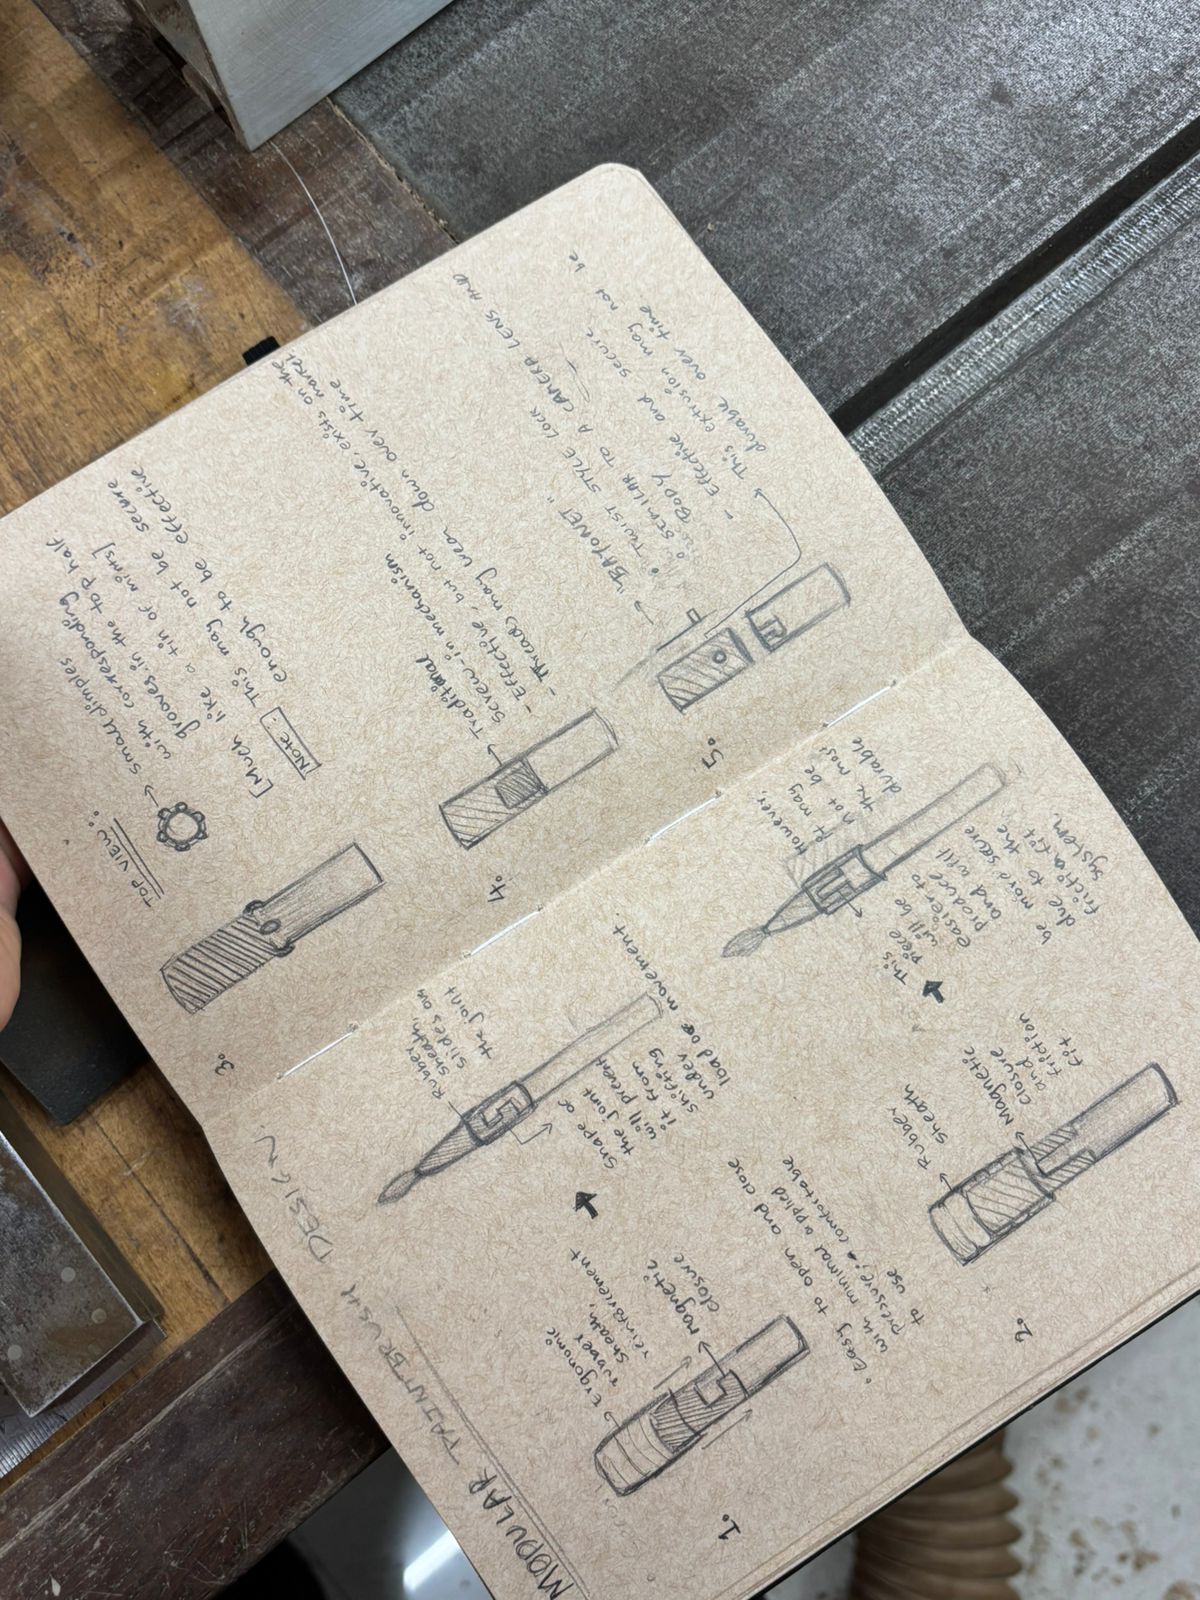 MODULAR PAINTBRUSH DESIGN
1.
Ergonomic
rubber
sheath,
reinforcement
magnetic
closure
• Easy to open and close
with minimal applied
pressure; comfortable
to use
Rubber
sheath,
slides over
the joint
Shape of
the joint
will prevent
it from
shifting
under
load or movement
2.
Rubber
sheath
Magnetic
closure
and
friction
fit.
This
piece
will be
easier to
produce
and will
be more secure
due to the
friction fit
system.
However,
it may
not be
the most
durable
3.
TOP VIEW:
Small dimples
with corresponding
grooves in the top half
[Much like a tin of mints]
NOTE:
This may not be secure
enough to be effective
4.
Traditional
screw-in mechanism
- Effective, but not innovative, exists on the market
- Threads may wear down over time
5.
"BAYONET"
• TWIST STYLE LOCK
SIMILAR TO A CAMERA LENS AND
BODY
- Effective and secure
- This extrusion may not be
durable over time